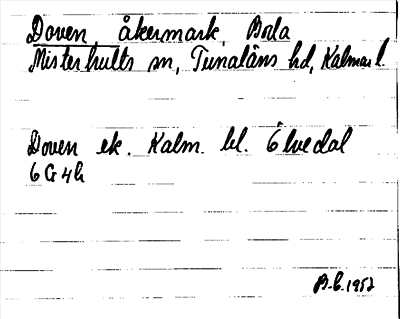 Doven, åkermark, Boda
Misterhults sn, Tunaläns hd, Kalmar l.
Doven ek. Kalm. bl. Ölvedal
6 G 4h
B-b. 1952